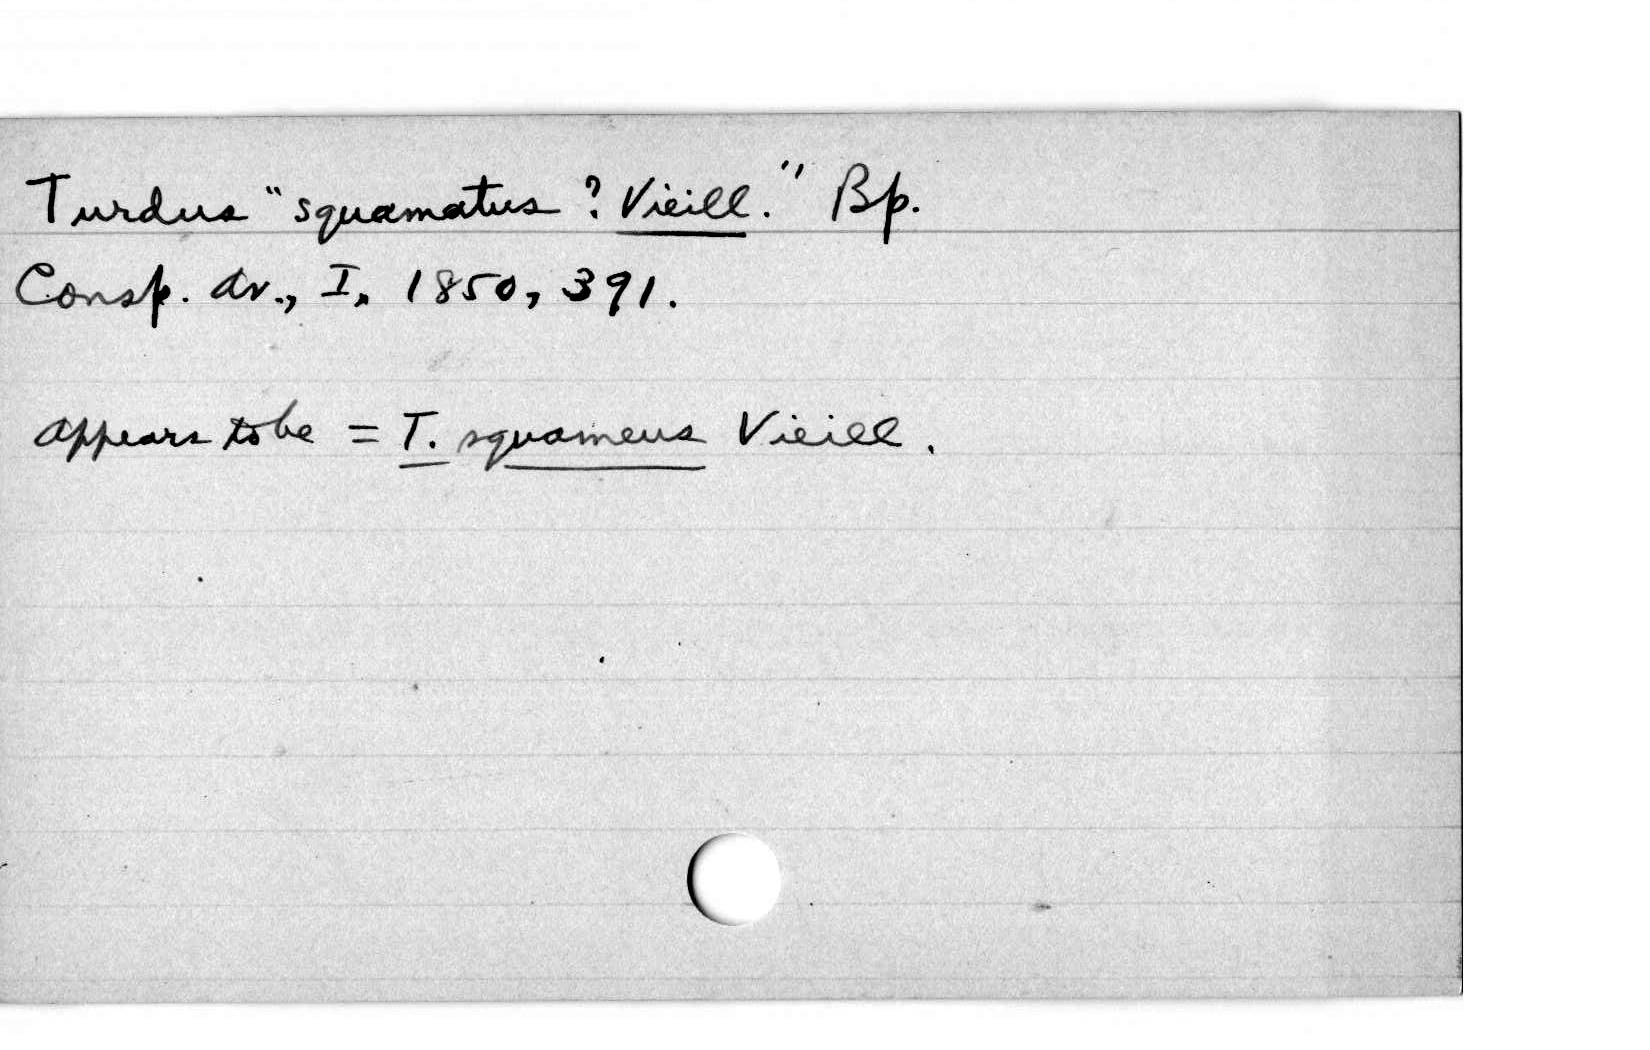 Turdus "squamatus ? Vieill." Bp.
Consp. Av., I, 1850, 391.
appears to be = T. squameus Vieill.